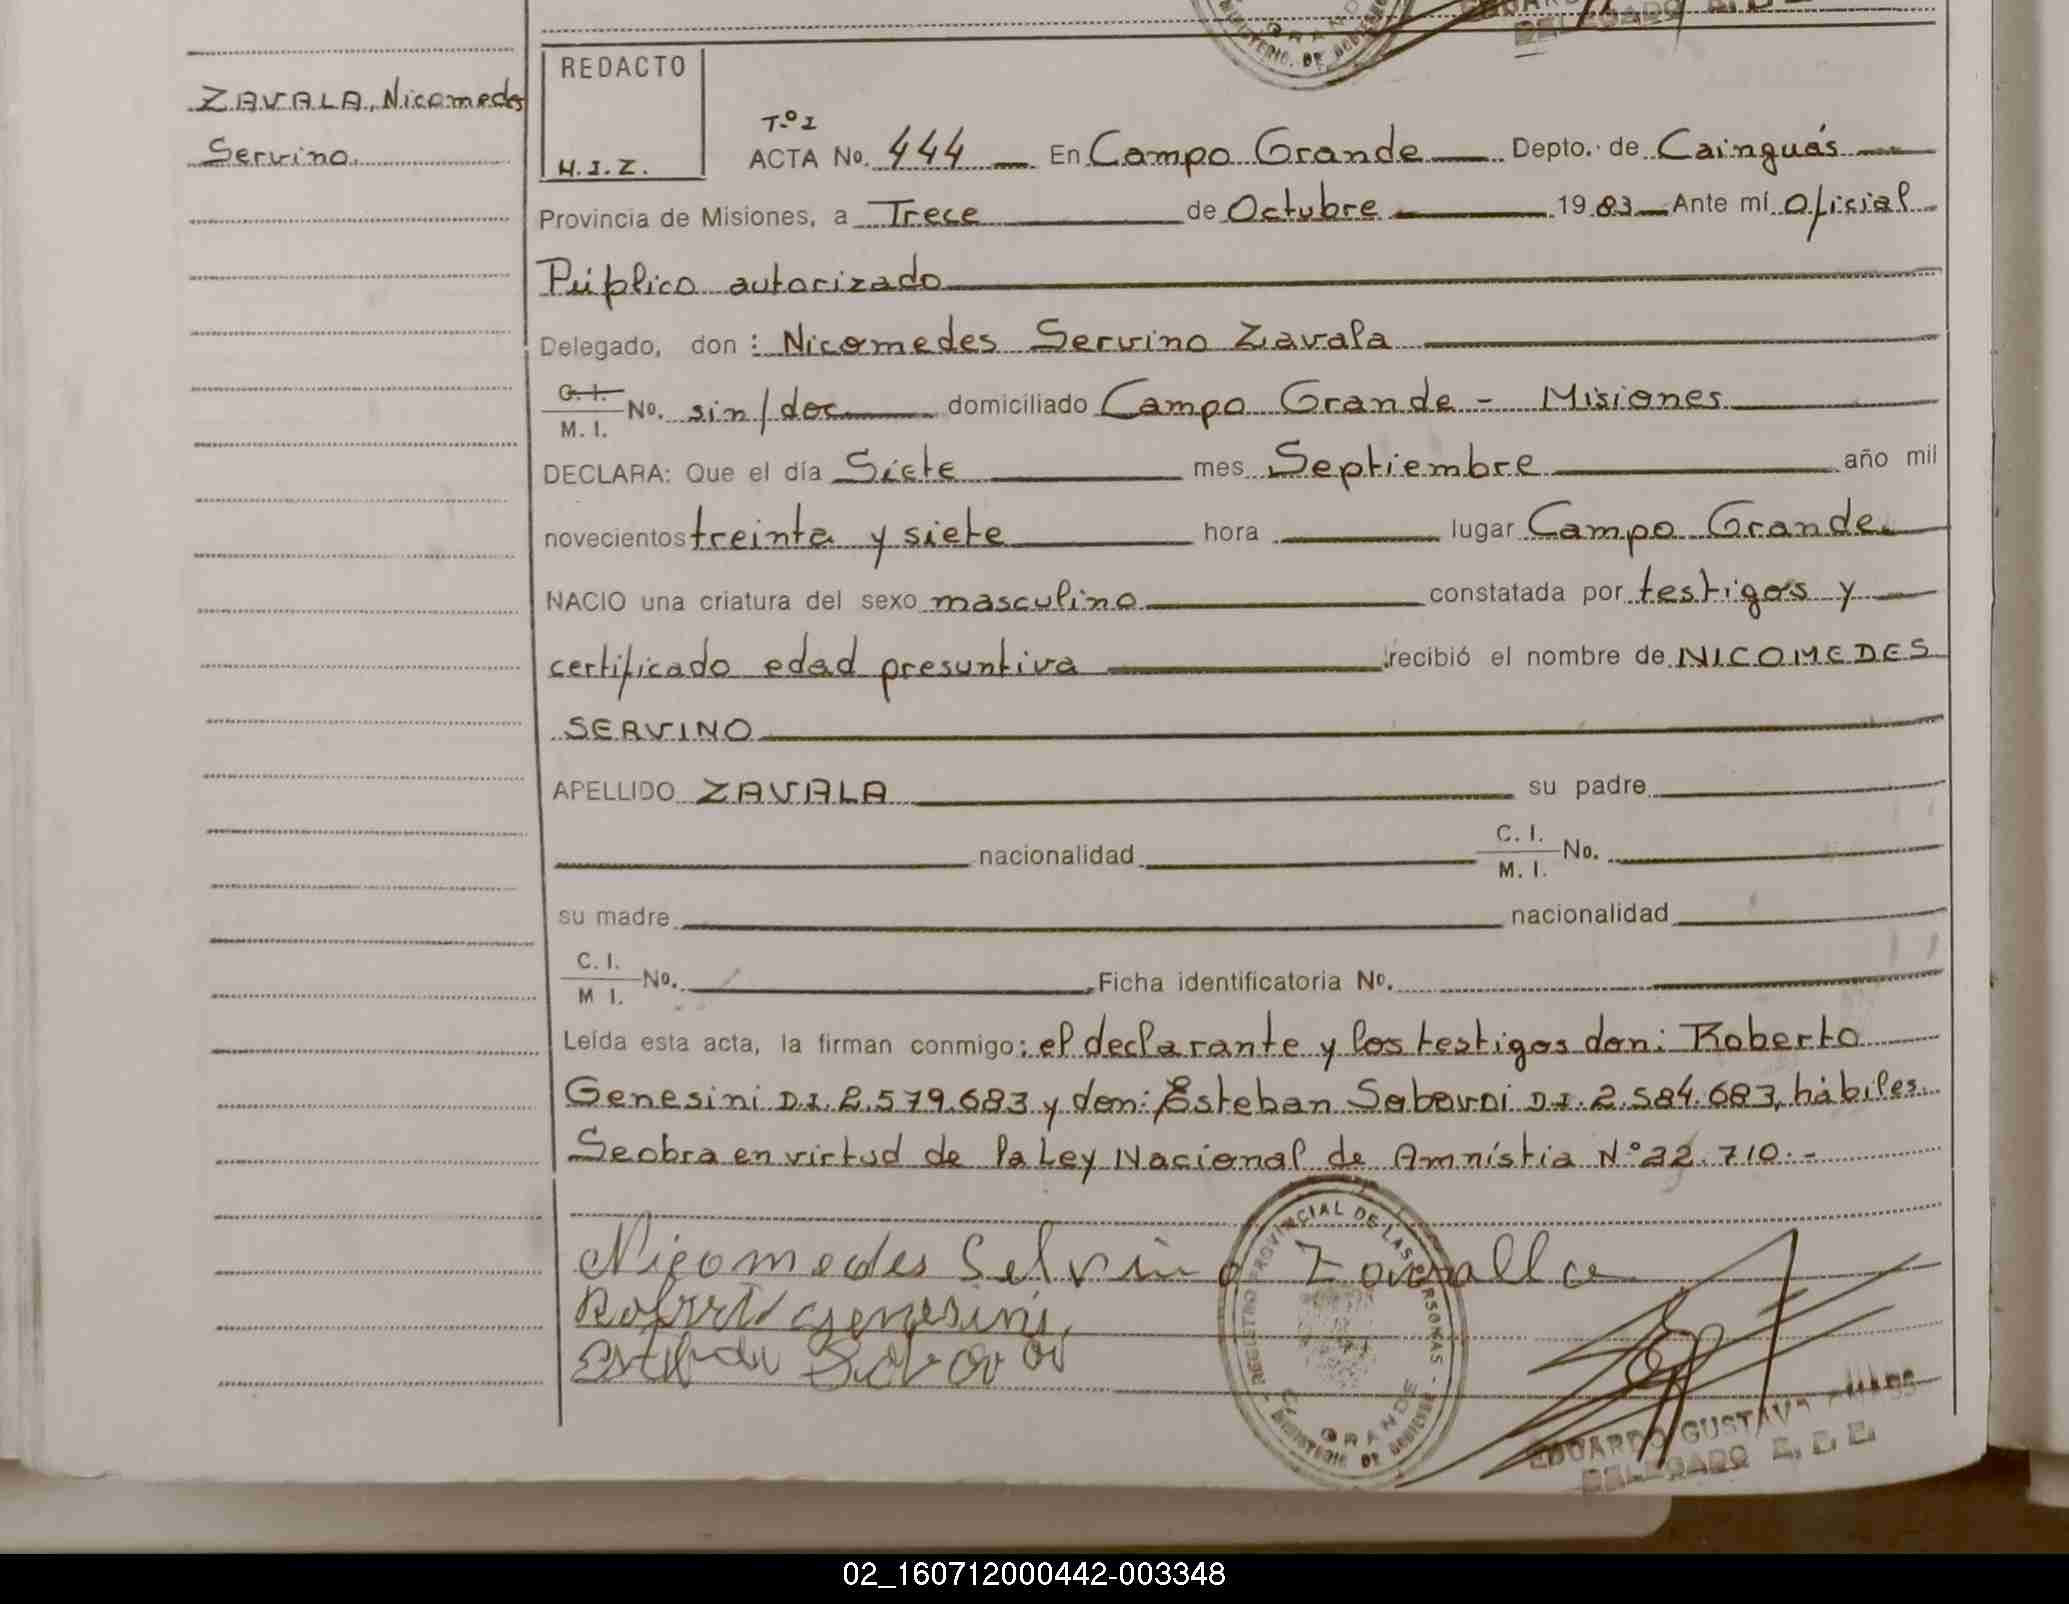 ZAVALA, Nicomedes
Servino
REDACTO
H.I.Z.
T.º I
ACTA No. 444 En Campo Grande Depto. de Cainguás
Provincia de Misiones, a Trece de Octubre 1983 Ante mí Oficial
Público autorizado
Delegado, don: Nicomedes Servino Zavala
C. I.
M. I. No. sin/doc domiciliado Campo Grande - Misiones
DECLARA: Que el día Siete mes Septiembre año mil
novecientos treinta y siete hora lugar Campo Grande
NACIO una criatura del sexo masculino constatada por testigos y
certificado edad presuntiva recibió el nombre de NICOMEDES
SERVINO
APELLIDO ZAVALA su padre
nacionalidad C. I. M. I. No.
su madre nacionalidad
C. I. M I. No. Ficha identificatoria No.
Leída esta acta, la firman conmigo: el declarante y los testigos don: Roberto
Genesini D.I. 2.579.683 y don: Esteban Saboroi D.I. 2.584.683, hábiles.
Se obra en virtud de la Ley Nacional de Amnistia N° 22.710.-
Nicomedes Selvino Zavalla
Roberto Genesini
Esteban
REGISTRO PROVINCIAL DE LAS PERSONAS - MINISTERIO DE GOBIERNO -
C. GRANDE
EDUARDO GUSTAVO
DELEGADO
02_160712000442-003348